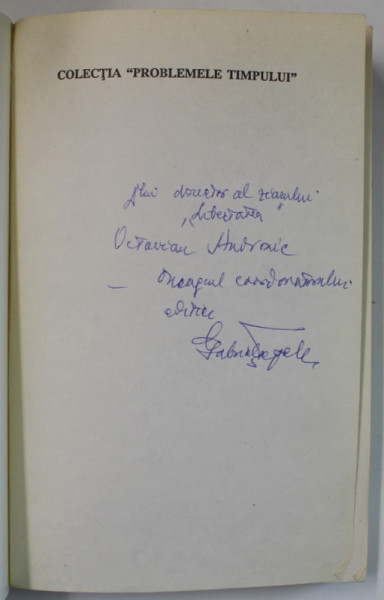 COLECŢIA “PROBLEMELE TIMPULUI”
director al ziarului
„Libertatea”
Octavian Andronic
— Omagiul coordonatorului
ediției